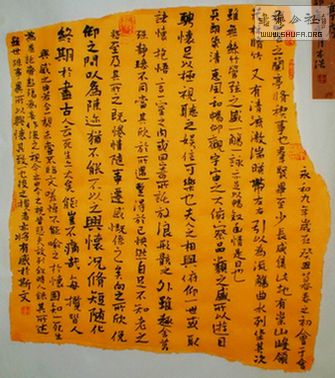 書藝公社
WWW.SHUFA.ORG
永和九年歲在癸丑暮春之初會于會
稽山陰之蘭亭脩禊事也群賢畢至少長咸集此地有崇山峻領
茂林脩竹又有清流激湍暎帶左右引以為流觴曲水列坐其次
雖無絲竹管弦之盛一觴一詠亦足以暢叙幽情是日也
天朗氣清惠風和暢仰觀宇宙之大俯察品類之盛所以遊目
騁懷足以極視聽之娛信可樂也夫人之相與俯仰一世或取
諸懷抱悟言一室之內或因寄所託放浪形骸之外雖趣舍萬
殊靜躁不同當其欣於所遇暫得於己快然自足不知老之
將至及其所之既惓情隨事遷感慨係之矣向之所欣俛
仰之間以為陳迹猶不能不以之興懷況脩短隨化
終期於盡古人云死生亦大矣豈不痛哉每攬昔人
興感之由若合一契未嘗不臨文嗟悼不能喻之於懷固知一死生
為虛誕齊彭殤為妄作後之視今亦由今之視昔悲夫故列叙時人錄其所述
雖世殊事異所以興懷其致一也後之攬者亦將有感於斯文